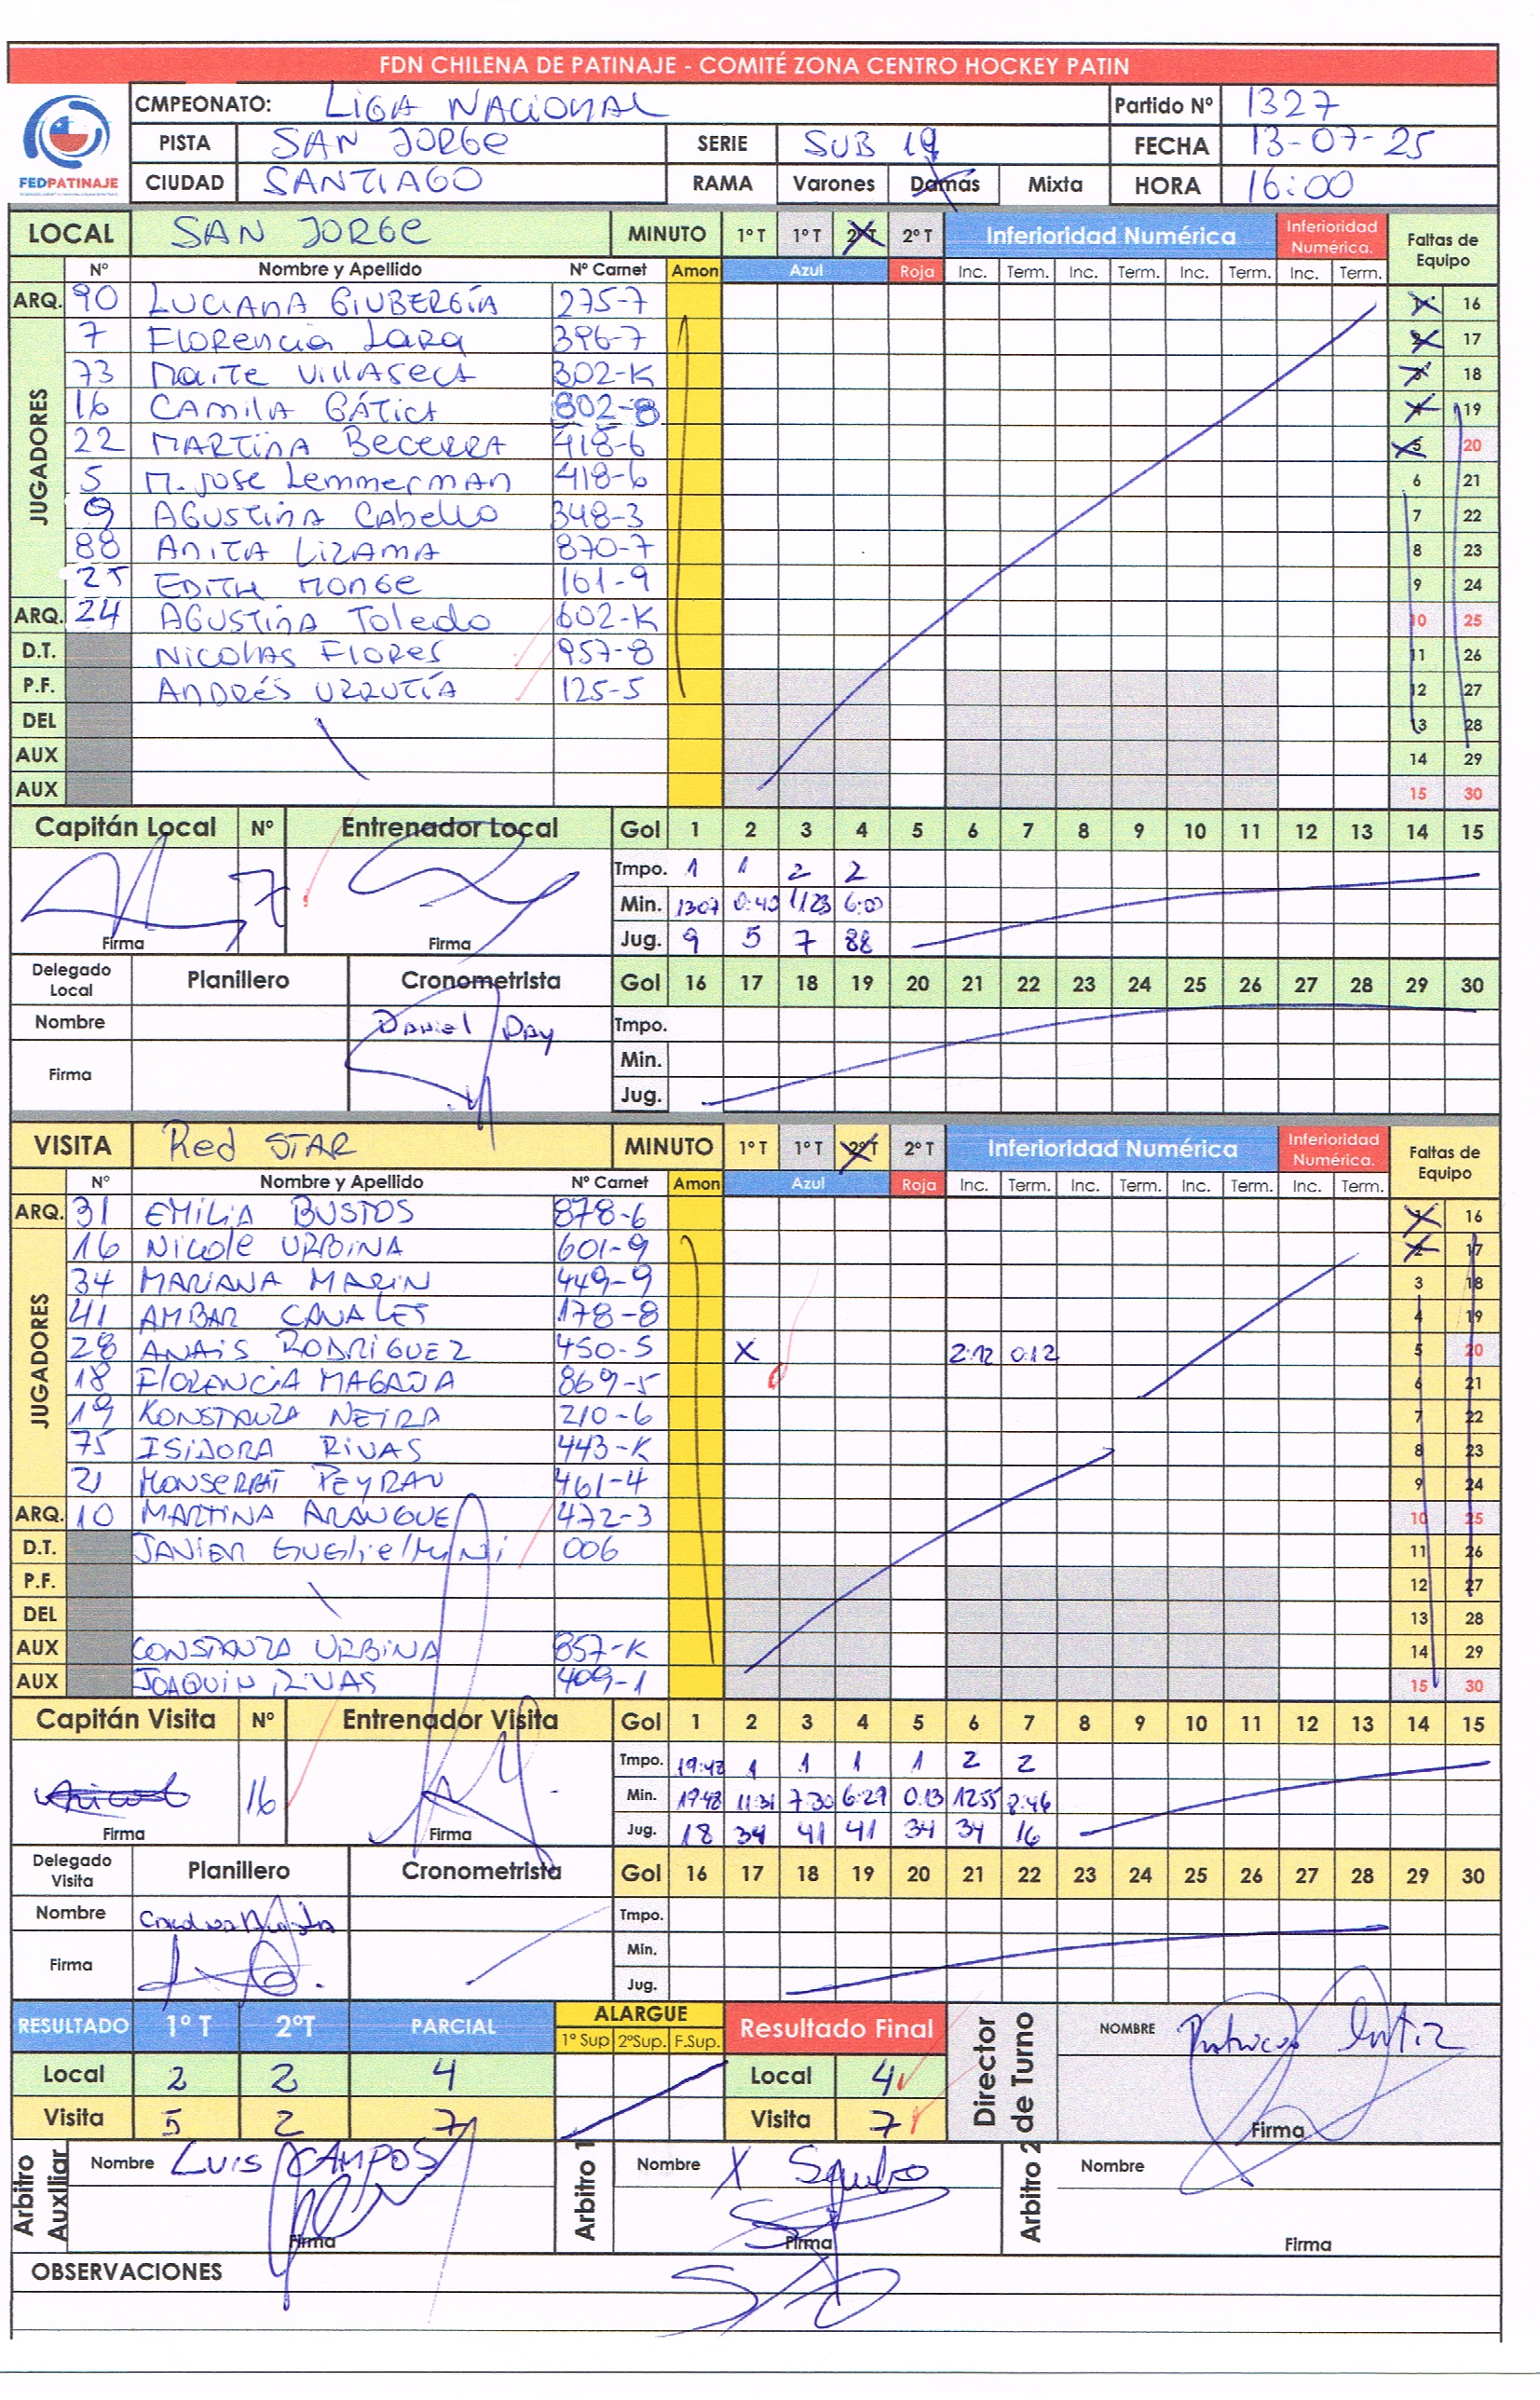 FDN CHILENA DE PATINAJE - COMITÉ ZONA CENTRO HOCKEY PATIN
CMPEONATO: LIGA NACIONAL Partido Nº 1327
PISTA SAN JORGE SERIE SUB 19 FECHA 13-07-25
FEDPATINAJE CIUDAD SANTIAGO RAMA Varones Damas Mixta HORA 16:00
LOCAL SAN JORGE MINUTO 1º T 1º T 2º T 2º T Inferioridad Numérica Inferioridad Numérica. Faltas de Equipo
Nº Nombre y Apellido Nº Carnet Amon Azul Roja Inc. Term. Inc. Term. Inc. Term. Inc. Term.
ARQ. 90 LUCIANA GIUBERGÍA 275-7 1 16
JUGADORES
7 Florencia Lara 396-7 2 17
73 Maite Villaseca 302-K 3 18
16 CAMILA GÁTICA 802-8 4 19
22 MARTINA BECERRA 418-6 5 20
5 M. Jose Lemmerman 418-6 6 21
9 AGUSTINA Cabello 348-3 7 22
88 ANITA LIZAMA 870-7 8 23
25 EDITH MONGE 161-9 9 24
ARQ. 24 AGUSTINA Toledo 602-K 10 25
D.T. NICOLAS FLORES 957-8 11 26
P.F. ANDRÉS URRUTÍA 125-5 12 27
DEL 13 28
AUX 14 29
AUX 15 30
Capitán Local Nº Entrenador Local Gol 1 2 3 4 5 6 7 8 9 10 11 12 13 14 15
Tmpo. 1 1 2 2
7 Min. 1307 0:40 1123 6:00
Firma Firma Jug. 9 5 7 88
Delegado Local Planillero Cronometrista Gol 16 17 18 19 20 21 22 23 24 25 26 27 28 29 30
Nombre Daniel Day Tmpo.
Min.
Firma Jug.
VISITA Red STAR MINUTO 1º T 1º T 2º T 2º T Inferioridad Numérica Inferioridad Numérica. Faltas de Equipo
Nº Nombre y Apellido Nº Carnet Amon Azul Roja Inc. Term. Inc. Term. Inc. Term. Inc. Term.
ARQ. 31 EMILIA BUSTOS 878-6 1 16
JUGADORES
16 Nicole URBINA 601-9 2 17
34 MARIANA MARIN 449-9 3 18
41 AMBAR CANALES 178-8 4 19
28 ANAIS RODRIGUEZ 450-5 X 2:12 0:12 5 20
18 FLORENCIA MAGAÑA 869-5 6 21
19 KONSTANZA NEIRA 210-6 7 22
75 ISIDORA RIVAS 443-K 8 23
21 MONSERRAT PEYRAU 461-4 9 24
ARQ. 10 MARTINA ARANGUE 472-3 10 25
D.T. JAVIER 006 11 26
P.F. 12 27
DEL 13 28
AUX CONSTANZA URBINA 857-K 14 29
AUX JOAQUIN RIVAS 409-1 15 30
Capitán Visita Nº Entrenador Visita Gol 1 2 3 4 5 6 7 8 9 10 11 12 13 14 15
Tmpo. 19:48 1 1 1 1 2 2
16 Min. 19:48 11:31 7:30 6:29 0:13 1255 8:46
Firma Firma Jug. 18 34 41 41 34 34 16
Delegado Visita Planillero Cronometrista Gol 16 17 18 19 20 21 22 23 24 25 26 27 28 29 30
Nombre Tmpo.
Min.
Firma Jug.
RESULTADO 1º T 2ºT PARCIAL ALARGUE 1º Sup 2ºSup. F.Sup. Resultado Final Director de Turno NOMBRE
Local 2 2 4 Local 4
Visita 5 2 7 Visita 7 Firma
Arbitro Auxiliar Nombre LUIS CAMPOS Arbitro 1 Nombre X Arbitro 2 Nombre
Firma Firma Firma
OBSERVACIONES